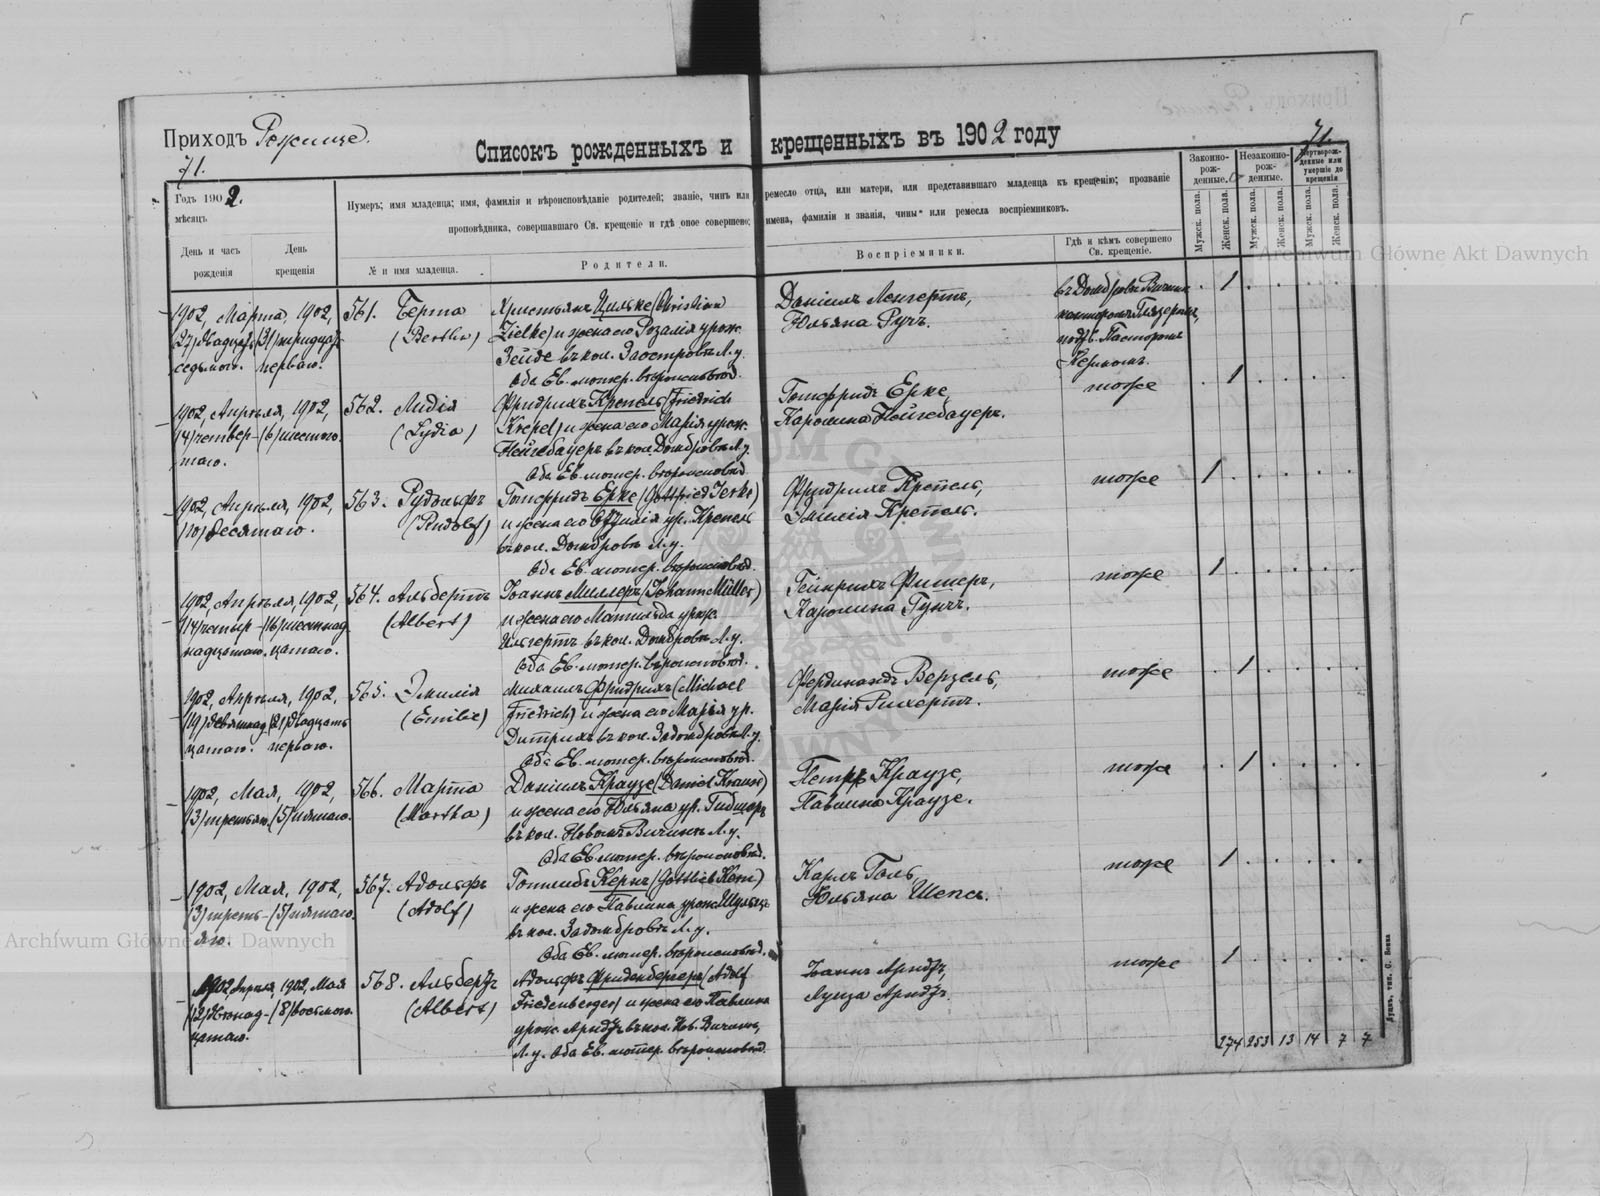 Приходъ Рожище.
71.
Списокъ рожденныхъ и крещенныхъ въ 1902 году
71.
Годъ 1902.
мѣсяцъ.
Нумеръ; имя младенца; имя, фамилія и вѣроисповѣданіе родителей; званіе, чинъ или ремесло отца, или матери, или представившаго младенца къ крещенію; прозваніе
проповѣдника, совершавшаго Св. крещеніе и гдѣ оное совершено; имена, фамиліи и званія, чины или ремесла воспріемниковъ.
Законно-
рож-
денные.
Незаконно-
рож-
денные.
Мертворож-
денные или
умершіе до
крещенія
День и часъ
рожденія
День
крещенія
№ и имя младенца.
Родители.
Воспріемники.
Гдѣ и кѣмъ совершено
Св. крещеніе.
Мужск. пола.
Женск. пола.
Мужск. пола.
Женск. пола.
Мужск. пола.
Женск. пола.
1902, Марта, 1902, 561. Берта Христьянъ Цильке (Christian Даніилъ Ленгертъ,
(27) двадцать (31) тридцать (Bertha) Zielke) и жена его Розалія урож. Юльяна Ручъ.
седьмого. перваго. Зейде въ кол. Заостровъ Л. у. подъ Пасторомъ
Оба Ев. лютер. вѣроисповѣд. Керномъ.
1902, Апрѣля, 1902, 562. Лидія Фридрихъ Крепель (Friedrich Готфридъ Ерке, тоже
(4) четвер- (6) шестого. (Lydia) Krepel) и жена его Марія урож. Каролина Нейгебауеръ.
таго. Нейгебауеръ въ кол. Домбровъ Л. у.
Оба Ев. лютер. вѣроисповѣд.
1902, Апрѣля, 1902, 563. Рудольфъ Готфридъ Ерке (Gottfried Jerke) Фридрихъ Крепель, тоже
(10) десятаго. (Rudolf) и жена его ур. Крепель Эмилія Крепель.
въ кол. Домбровъ Л. у.
Оба Ев. лютер. вѣроисповѣд.
1902, Апрѣля, 1902, 564. Альбертъ Іоаннъ Миллеръ (Johann Müller) Гейнрихъ Фишеръ, тоже
(14) четыр- (16) шестнад- (Albert) и жена его Матильда урож. Каролина Гунчъ.
надцатаго. цатаго. въ кол. Домбровъ Л. у.
Оба Ев. лютер. вѣроисповѣд.
1902, Апрѣля, 1902, 565. Эмилія Михаилъ Фридрихъ (Michael Фердинандъ Верзель, тоже
(19) девятнад- (21) двадцать (Emilie) Friedrich) и жена его Марія ур. Марія Рихертъ.
цатаго. перваго. Дитрихъ въ кол. Задомбровъ Л. у.
Оба Ев. лютер. вѣроисповѣд.
1902, Мая, 1902, 566. Марта Даніилъ Краузе (Daniel Krause) Петръ Краузе, тоже
(3) третьяго. (5) пятаго. (Martha) и жена его Юльяна ур. Павлина Краузе.
въ кол. Новомъ Л. у.
Оба Ев. лютер. вѣроисповѣд.
1902, Мая, 1902, 567. Адольфъ Готлибъ Кернъ (Gottlieb Kern) Карлъ Голь тоже
(3) треть- (5) пятаго. (Adolf) и жена его Павлина урож. Юльяна Шепсъ.
яго. въ кол. Задомбровъ Л. у.
Оба Ев. лютер. вѣроисповѣд.
1902, Апрѣля, 1902, Мая 568. Альбертъ Адольфъ Фриденбергеръ (Adolf Іоаннъ Арндтъ, тоже
(12) двѣнад- (8) восьмого. (Albert) Friedenberger) и жена его Павлина Луиза Арндтъ.
цатаго. урож. Арндтъ въ кол. Нов.
Л. у. Оба Ев. лютер. вѣроисповѣд.
274 253 13 14 7 7
Луцкъ, тип. С. Бонка
Archiwum Główne Akt Dawnych
Archiwum Główne Akt Dawnych